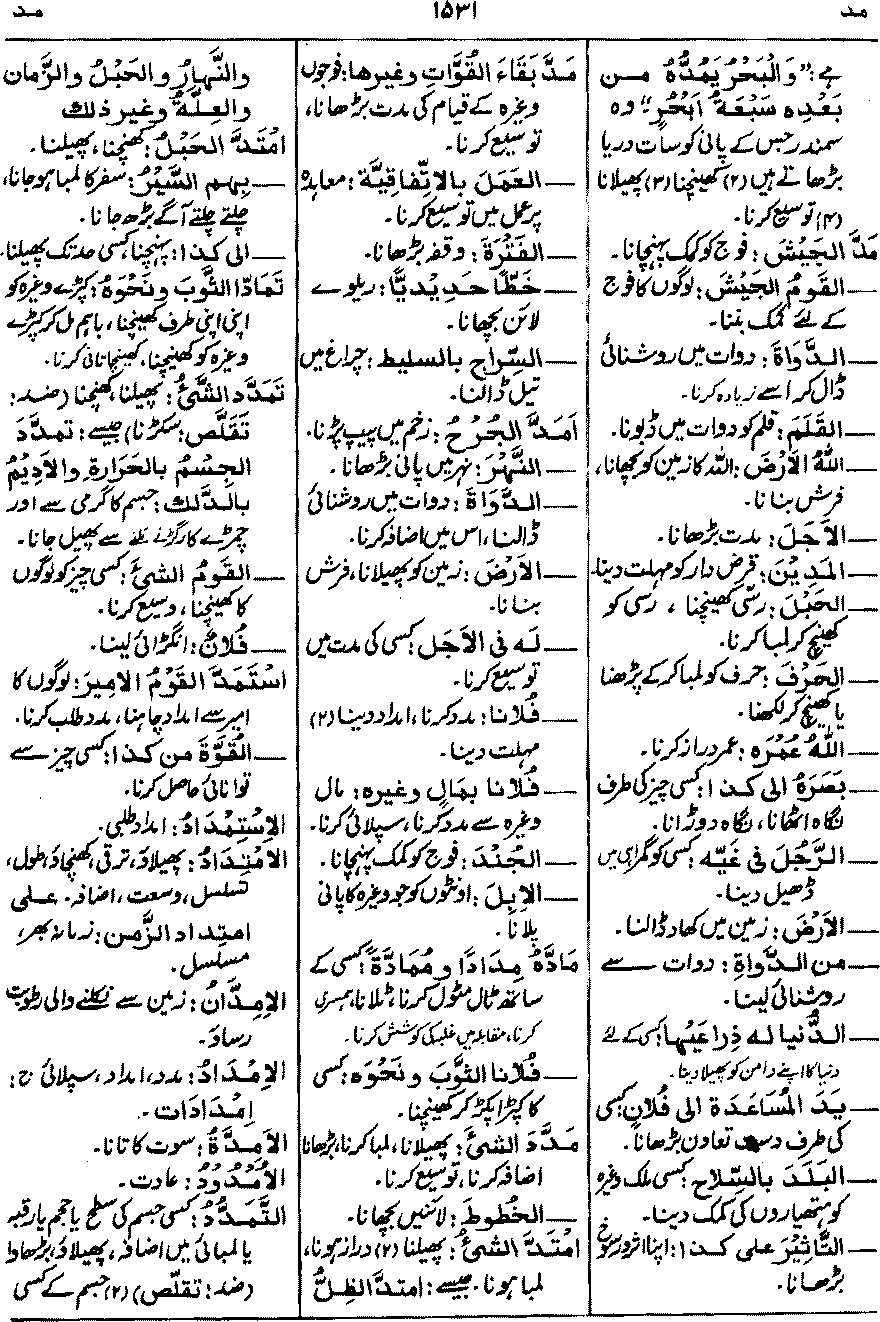 مد ۱۵۳۱ مد
ہے: "وَالْبَحْرُ يَمُدُّهٗ مِن
بَعْدِهٖ سَبْعَةُ اَبْحُرٍ" وہ
سمندر جس کے پانی کو سات دریا
بڑھاتے ہیں (۲) کھینچنا (۳) پھیلانا
(۴) توسیع کرنا۔
مَدَّ الجَيْشَ: فوج کو کمک پہنچانا۔
— القَوْمُ الجَيْشَ: لوگوں کا فوج
کے لئے کمک بننا۔
— الدَّوَاةَ: دوات میں روشنائی
ڈال کر اسے زیادہ کرنا۔
— القَلَمَ: قلم کو دوات میں ڈبونا۔
— اللّٰهُ الأَرْضَ: اللہ کا زمین کو بچھانا،
فرش بنانا۔
— الأَجَلَ: مدت بڑھانا۔
— المَدِيْنَ: قرض دار کو مہلت دینا۔
— الحَبْلَ: رسّی کھینچنا، رسی کو
کھینچ کر لمبا کرنا۔
— الحَرْفَ: حرف کو لمبا کر کے پڑھنا
یا کھینچ کر لکھنا۔
— اللّٰهُ عُمُرَه: عمر دراز کرنا۔
— بَصَرَهُ الى كذا: کسی چیز کی طرف
نگاہ اٹھانا، نگاہ دوڑانا۔
— الرَّجُلَ فى غَيِّه: کسی کو گمراہی میں
ڈھیل دینا۔
— الأَرْضَ: زمین میں کھاد ڈالنا۔
— من الدَّوَاةِ: دوات سے
روشنائی لینا۔
— الدُّنيا له ذِراعَيْها: کسی کے لئے
دنیا کا اپنے دامن کو پھیلا دینا۔
— يَدَ المُسَاعَدَة الى فُلانٍ: کسی
کی طرف دست تعاون بڑھانا۔
— البَلَدَ بِالسِّلاح: کسی ملک وغیرہ
کو ہتھیاروں کی کمک دینا۔
— التَّاثِيْرَ على كذا: اپنا اثر و رسوخ
بڑھانا۔
مَدَّ بَقَاءَ القُوَّاتِ وغيرها: فوجوں
وغیرہ کے قیام کی مدت بڑھانا،
توسیع کرنا۔
— العَمَلَ بالاِتِّفَاقِيَّة: معاہدہ
پر عمل میں توسیع کرنا۔
— الفَتْرَةَ: وقفہ بڑھانا۔
— خَطًّا حَدِيْدِيًّا: ریلوے
لائن بچھانا۔
— السِّراج بالسليط: چراغ میں
تیل ڈالنا۔
اَمَدَّ الجُرْحُ: زخم میں پیپ پڑنا۔
— النَّهْرَ: نہر میں پانی بڑھانا۔
— الدَّوَاةَ: دوات میں روشنائی
ڈالنا، اس میں اضافہ کرنا۔
— الأَرْضَ: زمین کو پھیلانا، فرش
بنانا۔
— لَه فى الأَجَل: کسی کی مدت میں
توسیع کرنا۔
— فُلَانا: مدد کرنا، امداد دینا (۲)
مہلت دینا۔
— فُلَانا بمَالٍ وغيره: مال
وغیرہ سے مدد کرنا، سپلائی کرنا۔
— الجُنْدَ: فوج کو کمک پہنچانا۔
— الإِبِلَ: اونٹوں کو جو وغیرہ کا پانی
پلانا۔
مَادَّهُ مِدَادًا و مُمَادَّةً: کسی کے
ساتھ ٹال مٹول کرنا، ٹلانا، ہمسری
کرنا، مقابلہ میں غلبہ کی کوشش کرنا۔
— فُلَانا الثَّوْبَ و نَحْوَه: کسی
کا کپڑا پکڑ کر کھینچنا۔
مَدَّدَ الشئَ: پھیلانا، لمبا کرنا، بڑھانا
اضافہ کرنا، توسیع کرنا۔
— الخُطُوطَ: لائنیں بچھانا۔
اِمْتَدَّ الشئُ: پھیلنا (۲) دراز ہونا،
لمبا ہونا۔ جیسے: اِمتدَّ الظِلُّ
والنَّهارُ والحَبْلُ والزَّمان
والعِلَّةُ وغير ذلك
اِمْتَدَّ الحَبْلُ: کھنچنا، پھیلنا۔
— بِهِم السَّيْرُ: سفر کا لمبا ہو جانا،
چلتے چلتے آگے بڑھ جانا۔
— الى كذا: پہنچنا، کسی حد تک پھیلنا۔
تَمَادَّا الثَّوْبَ ونَحْوَهُ: کپڑے وغیرہ کو
اپنی اپنی طرف کھینچنا، باہم مل کر کپڑے
وغیرہ کو کھینچنا، کھینچا تانی کرنا۔
تَمَدَّد الشَّئُ: پھیلنا، کھنچنا (ضد:
تَقَلَّص: سکڑنا) جیسے: تمدَّدَ
الجِسْمُ بالحَرَارةِ والأدِيْمُ
بالدَّلك: جسم کا گرمی سے اور
چمڑے کا رگڑنے ملنے سے پھیل جانا۔
— القَومُ الشئَ: کسی چیز کو لوگوں
کا کھینچنا، وسیع کرنا۔
— فُلَانٌ: انگڑائی لینا۔
اسْتَمَدَّ القَوْمُ الأميرَ: لوگوں کا
امیر سے امداد چاہنا، مدد طلب کرنا۔
— القُوَّةَ من كذا: کسی چیز سے
توانائی حاصل کرنا۔
الاِسْتِمْدَادُ: امداد طلبی۔
الاِمْتِدَادُ: پھیلاؤ، ترقی، کھنچاؤ، طول،
تسلسل، وسعت، اضافہ۔ على
اِمتِداد الزَّمن: زمانہ بھر،
مسلسل۔
الاِمِدَّانُ: زمین سے نکلنے والی رطوبت
رساؤ۔
الاِمْدَادُ: مدد، امداد، سپلائی ج:
اِمْدَادَات۔
الأَمِدَّةُ: سوت کا تانا۔
الأُمْدُوْدُ: عادت۔
التَّمَدُّدُ: کسی جسم کی سطح یا حجم یا رقبہ
یا لمبائی میں اضافہ، پھیلاؤ، بڑھاوا
(ضد: تقلّص) (۲) جسم کے کسی